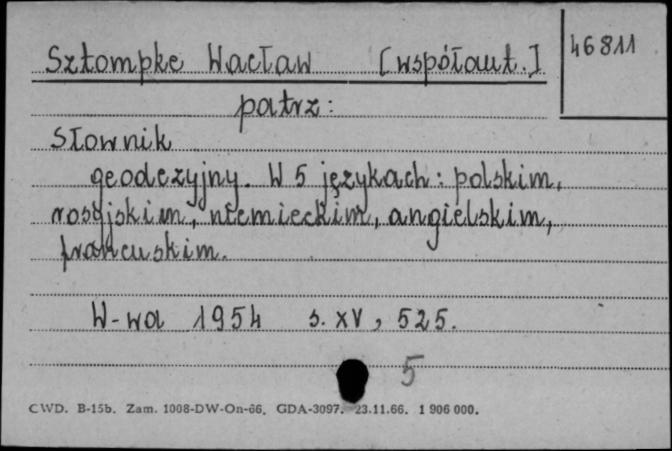 Sztompke Wacław [współaut.]
46811
patrz:
Słownik
geodezyjny. W 5 językach: polskim,
rosyjskim, niemieckim, angielskim,
francuskim.
W-wa 1954 s. XV, 525.
5
CWD. B-15b. Zam. 1008-DW-On-66. GDA-3097. 23.11.66. 1 906 000.